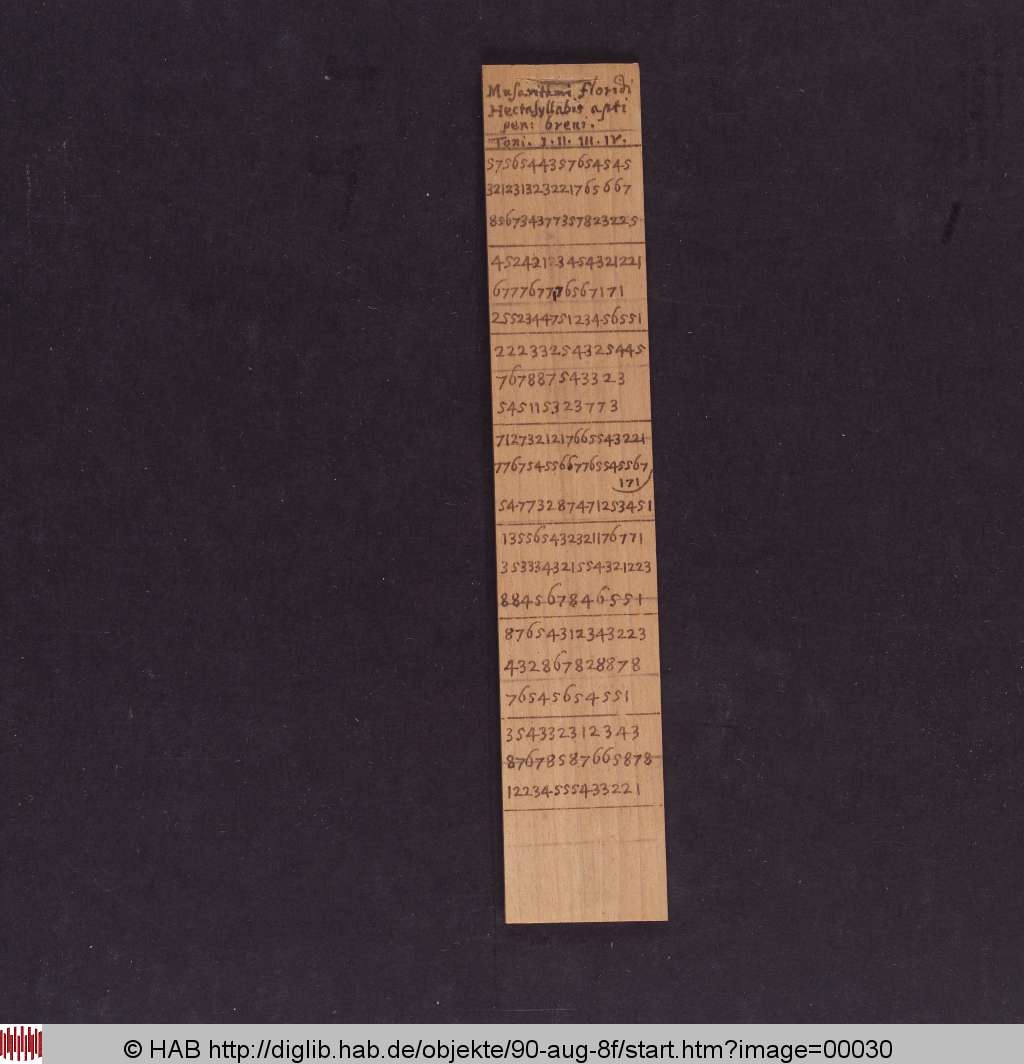 Musarithmi floridi
Hectasyllabis apti
peni breui.
Toni. I. II. III. IV.
57565443576545 45
32123132322176 5 6 6 7
856734377357823225
4524212345 4321221
677767776567171
255234475123456551
22233254325445
76788754 3323
54511532 3 7 7 3
71273212176655 43221
77675455667765545567
171
547732874712534 51
13556543232117 6 7 7 1
353334321554321223
8845678 4 6 5 5 1
876543123 43223
43286782 8878
7654565 4 5 5 1
354332312 3 4 3
876785876 65878
12234555433221
© HAB http://diglib.hab.de/objekte/90-aug-8f/start.htm?image=00030